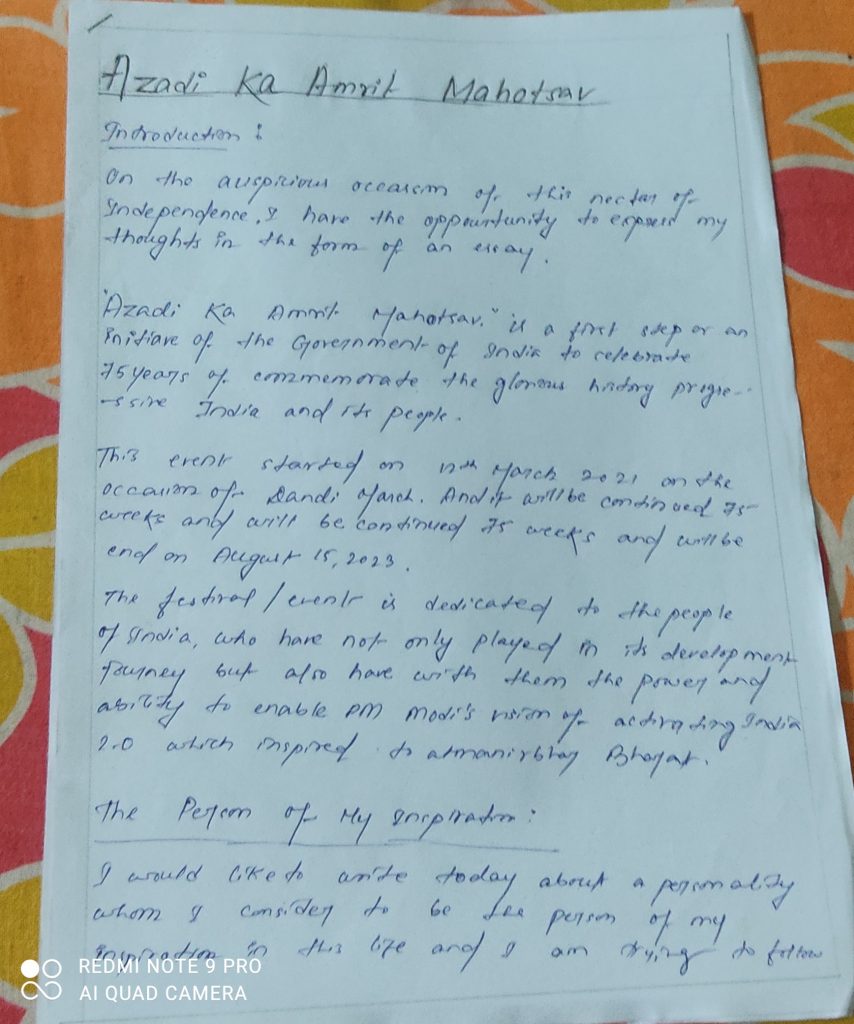 Azadi Ka Amrit Mahotsav
Introduction :
On the auspicious occasion of this nectar of
Independence, I have the oppourtunity to express my
thoughts in the form of an essay.
"Azadi Ka Amrit Mahotsav." is a first step or an
initiave of the Government of India to celebrate
75 years of commemorate the glorious history progre--
-ssive India and its people.
This event started on 12th March 2021 on the
occasion of Dandi March. And it will be continued 75
weeks and will be continued 75 weeks and will be
end on August 15, 2023.
The festival / event is dedicated to the people
of India, who have not only played in its development
journey but also have with them the power and
ability to enable PM Modi's vision of activating India
2.0 which inspired to atmanirbhar Bharat.
The Person of My Inspiration :
I would like to write today about a personality
whom I consider to be the person of my
inspiration in this life and I am trying to follow
REDMI NOTE 9 PRO
AI QUAD CAMERA